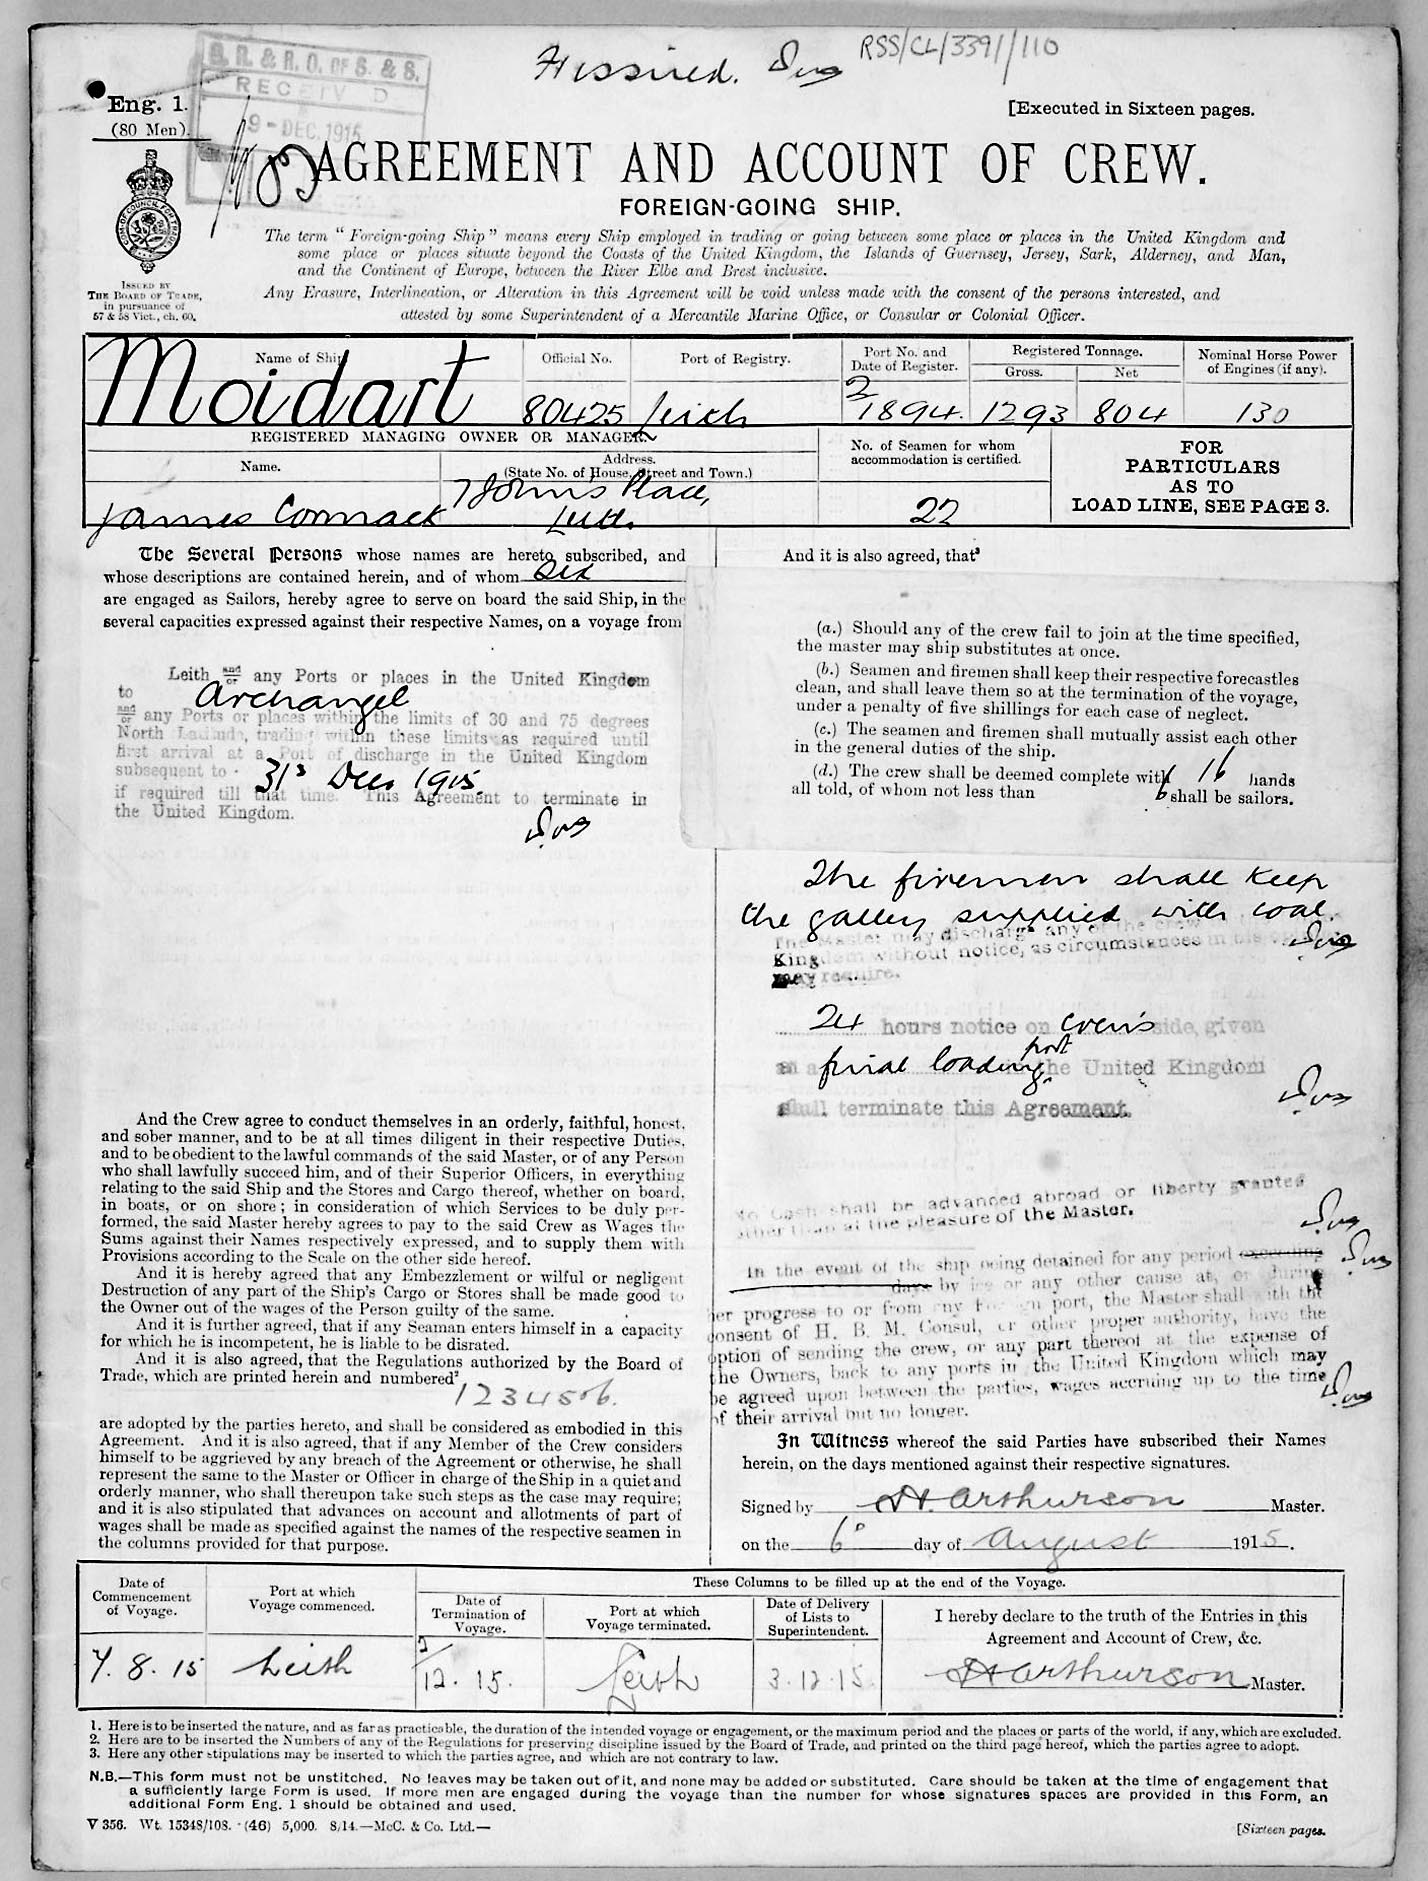 RSS/CL/3391/110
B. R. & R. O. OF S. & S.
RECEIV D
9 - DEC. 1915
Eng. 1.
(80 Men).
[Executed in Sixteen pages.
AGREEMENT AND ACCOUNT OF CREW.
FOREIGN-GOING SHIP.
ISSUED BY
THE BOARD OF TRADE,
in pursuance of
57 & 58 Vict., ch. 60.
The term "Foreign-going Ship" means every Ship employed in trading or going between some place or places in the United Kingdom and
some place or places situate beyond the Coasts of the United Kingdom, the Islands of Guernsey, Jersey, Sark, Alderney, and Man,
and the Continent of Europe, between the River Elbe and Brest inclusive.
Any Erasure, Interlineation, or Alteration in this Agreement will be void unless made with the consent of the persons interested, and
attested by some Superintendent of a Mercantile Marine Office, or Consular or Colonial Officer.
Name of Ship
Official No.
Port of Registry.
Port No. and
Date of Register.
Registered Tonnage.
Gross.
Net
Nominal Horse Power
of Engines (if any).
Moidart
80425
Leith
2
1894.
1293
804
130
REGISTERED MANAGING OWNER OR MANAGER.
Name.
Address.
(State No. of House, Street and Town.)
No. of Seamen for whom
accommodation is certified.
FOR
PARTICULARS
AS TO
LOAD LINE, SEE PAGE 3.
James Cormack
7 John's Place,
Leith.
22
The Several Persons whose names are hereto subscribed, and
whose descriptions are contained herein, and of whom Six
are engaged as Sailors, hereby agree to serve on board the said Ship, in the
several capacities expressed against their respective Names, on a voyage from
Leith and/or any Ports or places in the United Kingdom
to Archangel
and/or any Ports or places within the limits of 30 and 75 degrees
North Latitude, trading within these limits as required until
first arrival at a Port of discharge in the United Kingdom
subsequent to 31s Decr 1915.
if required till that time. This Agreement to terminate in
the United Kingdom.
And the Crew agree to conduct themselves in an orderly, faithful, honest,
and sober manner, and to be at all times diligent in their respective Duties,
and to be obedient to the lawful commands of the said Master, or of any Person
who shall lawfully succeed him, and of their Superior Officers, in everything
relating to the said Ship and the Stores and Cargo thereof, whether on board,
in boats, or on shore; in consideration of which Services to be duly per-
formed, the said Master hereby agrees to pay to the said Crew as Wages the
Sums against their Names respectively expressed, and to supply them with
Provisions according to the Scale on the other side hereof.
And it is hereby agreed that any Embezzlement or wilful or negligent
Destruction of any part of the Ship's Cargo or Stores shall be made good to
the Owner out of the wages of the Person guilty of the same.
And it is further agreed, that if any Seaman enters himself in a capacity
for which he is incompetent, he is liable to be disrated.
And it is also agreed, that the Regulations authorized by the Board of
Trade, which are printed herein and numbered²
123456.
are adopted by the parties hereto, and shall be considered as embodied in this
Agreement. And it is also agreed, that if any Member of the Crew considers
himself to be aggrieved by any breach of the Agreement or otherwise, he shall
represent the same to the Master or Officer in charge of the Ship in a quiet and
orderly manner, who shall thereupon take such steps as the case may require;
and it is also stipulated that advances on account and allotments of part of
wages shall be made as specified against the names of the respective seamen in
the columns provided for that purpose.
And it is also agreed, that³
(a.) Should any of the crew fail to join at the time specified,
the master may ship substitutes at once.
(b.) Seamen and firemen shall keep their respective forecastles
clean, and shall leave them so at the termination of the voyage,
under a penalty of five shillings for each case of neglect.
(c.) The seamen and firemen shall mutually assist each other
in the general duties of the ship.
(d.) The crew shall be deemed complete with 16 hands
all told, of whom not less than 6 shall be sailors.
The firemen shall keep
the galley supplied with coal.
The Master may discharge any of the crew
Kingdom without notice, as circumstances in his
may require.
24 hours notice on crew's side, given
final loading port the United Kingdom
shall terminate this Agreement.
No Cash shall be advanced abroad or liberty granted
other than at the pleasure of the Master.
In the event of the ship being detained for any period exceeding
days by ice or any other cause at, or during
her progress to or from any Foreign port, the Master shall with the
consent of H. B. M. Consul, or other proper authority, have the
option of sending the crew, or any part thereof at the expense of
the Owners, back to any ports in the United Kingdom which may
be agreed upon between the parties, wages accruing up to the time
of their arrival but no longer.
In Witness whereof the said Parties have subscribed their Names
herein, on the days mentioned against their respective signatures.
Signed by Arthurson Master.
on the 6 day of August 1915.
Date of
Commencement
of Voyage.
Port at which
Voyage commenced.
These Columns to be filled up at the end of the Voyage.
Date of
Termination of
Voyage.
Port at which
Voyage terminated.
Date of Delivery
of Lists to
Superintendent.
I hereby declare to the truth of the Entries in this
Agreement and Account of Crew, &c.
7.8.15
Leith
2/12.15.
Leith
3.12.15
Arthurson Master.
1. Here is to be inserted the nature, and as far as practicable, the duration of the intended voyage or engagement, or the maximum period and the places or parts of the world, if any, which are excluded.
2. Here are to be inserted the Numbers of any of the Regulations for preserving discipline issued by the Board of Trade, and printed on the third page hereof, which the parties agree to adopt.
3. Here any other stipulations may be inserted to which the parties agree, and which are not contrary to law.
N.B.—This form must not be unstitched. No leaves may be taken out of it, and none may be added or substituted. Care should be taken at the time of engagement that
a sufficiently large Form is used. If more men are engaged during the voyage than the number for whose signatures spaces are provided in this Form, an
additional Form Eng. 1 should be obtained and used.
V 356. Wt. 15348/108. (46) 5,000. 8/14.—McC. & Co. Ltd.—
[Sixteen pages.